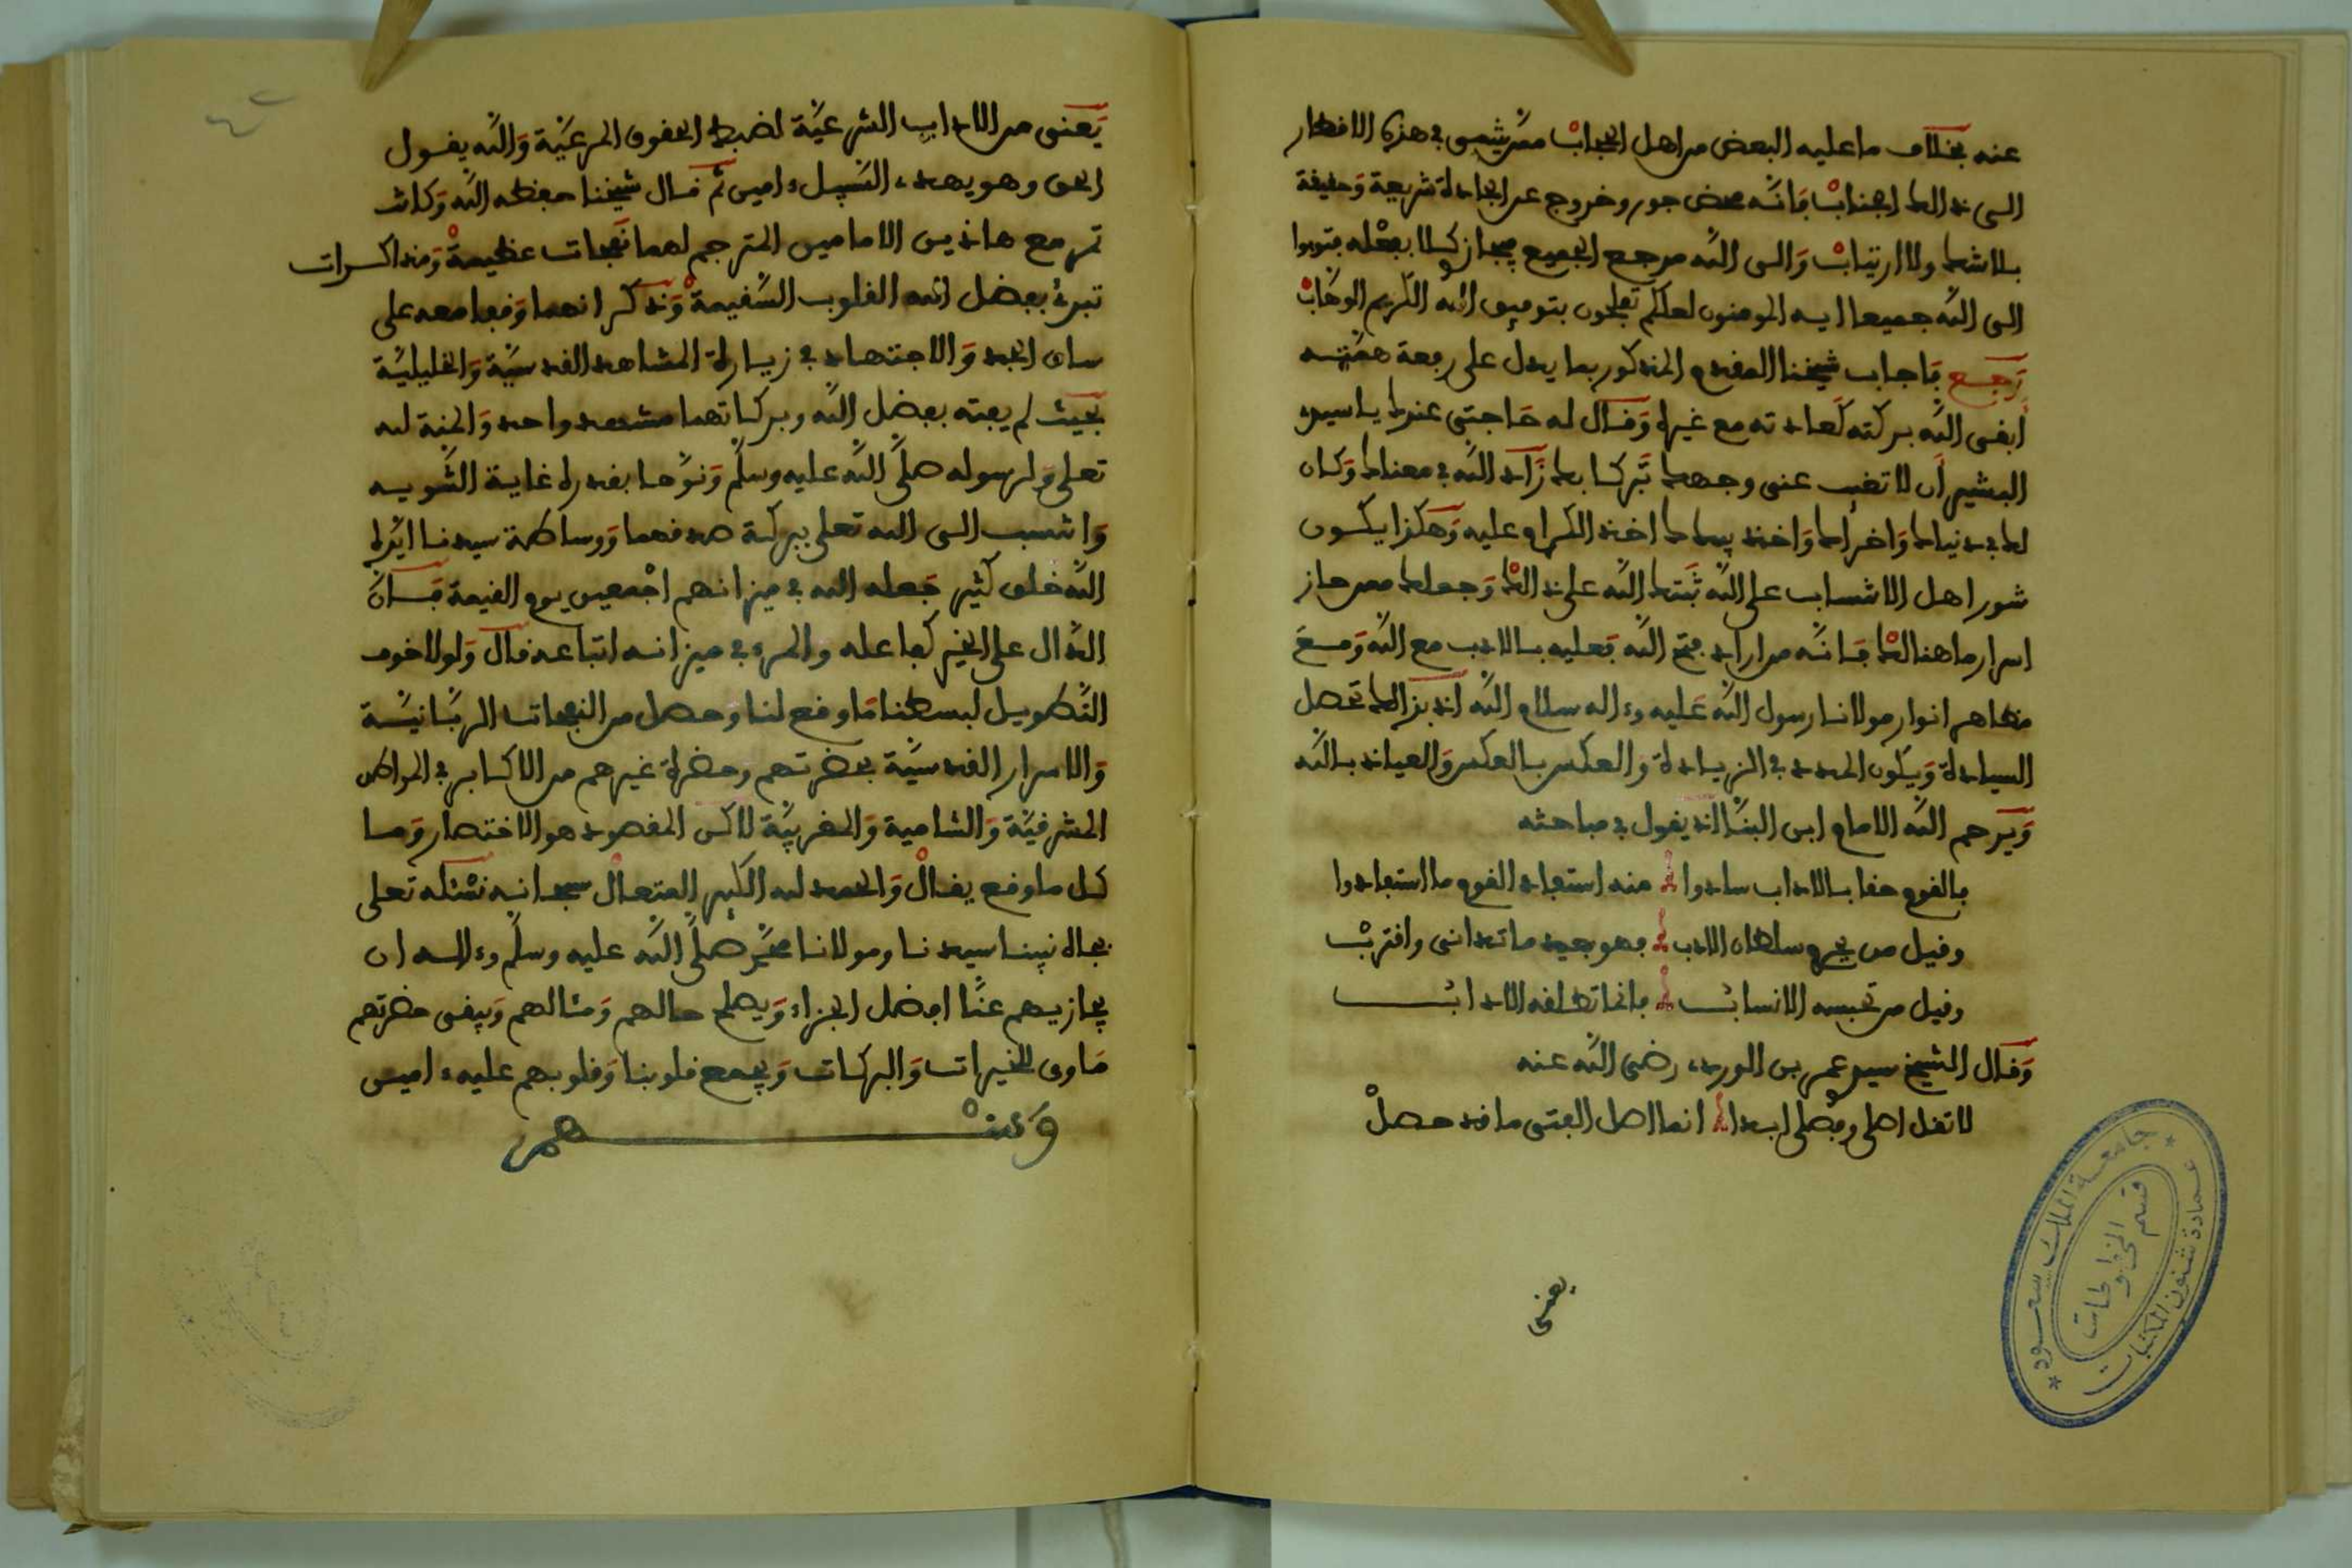 عنه بخلاف ما عليه البعض من اهل الحجاب ممن يمشي في هذه الاقطار
الى ذالك الجناب فانه محض جور وخروج عن الجادة شريعة وحقيقة
بلا شك ولا ارتياب والى الله مرجع الجميع فيجاز كلا بفعله فتوبوا
الى الله جميعا ايه المومنون لعلكم تفلحون بتوفيق الله الكريم الوهاب
رجع فاجاب شيخنا المقدم المذكور بما يدل على رفعة همته
ابقى الله بركته كعادته مع غيره وقال له حاجتي عندك يا سيدي
البشير ان لا تغيب عني وجهك تبركا بك زاد الله في معناك وكان
لك في دنياك واخراك واخذ بيدك اخذ الكرام عليه وهكذا يكون
شور اهل الانتساب على الله ثبتك الله على ذالك وجعلك ممن حاز
اسرار ما هنالك فانه من اراد فتح الله فعليه بالادب مع الله ومع
مظاهر انوار مولانا رسول الله عليه وءاله سلام الله اذ بذالك تحصل
السيادة ويكون المدد في الزيادة والعكس بالعكس والعياذ بالله
ويرحم الله الامام ابن البنا اذ يقول في مباحثه
فالقوم حقا بالاداب سادوا منه استفاد القوم ما استفادوا
وقيل من يحرم سلطان الادب فهو بعيد ما تدانى واقترب
وقيل من تحبسه الانساب فانما تطلقه الاداب
وقال الشيخ سيدي عمر بن الوردي رضي الله عنه
لا تقل اصلي وفصلي ابدا انما اصل الفتى ما قد حصل
يعني
جامعة الملك سعود
عمادة شئون المكتبات
قسم المخطوطات
يعني من الاداب الشرعية لضبط الحقوق المرعية والله يقول
الحق وهو يهدي السبيل ءامين ثم قال شيخنا حفظه الله وكانت
تمر مع هاذين الامامين المترجم لهما نفحات عظيمة ومذاكرات
تبرئ بفضل الله القلوب السقيمة وذكر انهما وقفا معه على
ساق الجد والاجتهاد في زيارة المشاهد القدسية والخليلية
بحيث لم يفته بفضل الله وبركاتهما مشهد واحد والمنة لله
تعلى ولرسوله صلى الله عليه وسلم ونوها بقدره غاية التنويه
وانتسب الى الله تعلى ببركة صدقهما ووساطة سيدنا ايده
الله خلق كثير جعله الله في ميزانهم اجمعين يوم القيمة فان
الدال على الخير كفاعله والمرء في ميزانه اتباعه قال ولولا خوف
التطويل لبسطنا ما وقع لنا وحصل من النفحات الربانية
والاسرار القدسية بحضرتهم وحضرة غيرهم من الاكابر في المواطن
المشرقية والشامية والمغربية لاكن المقصود هو الاختصار وما
كل ما وقع يقال والحمد لله الكبير المتعال سبحانه نسئله تعلى
بجاه نبينا سيدنا ومولانا محمد صلى الله عليه وسلم وءاله ان
يجازيهم عنا افضل الجزاء ويصلح حالهم ومئالهم ويبقى حضرتهم
ماوى للخيرات والبركات ويجمع قلوبنا وقلوبهم عليه ءامين